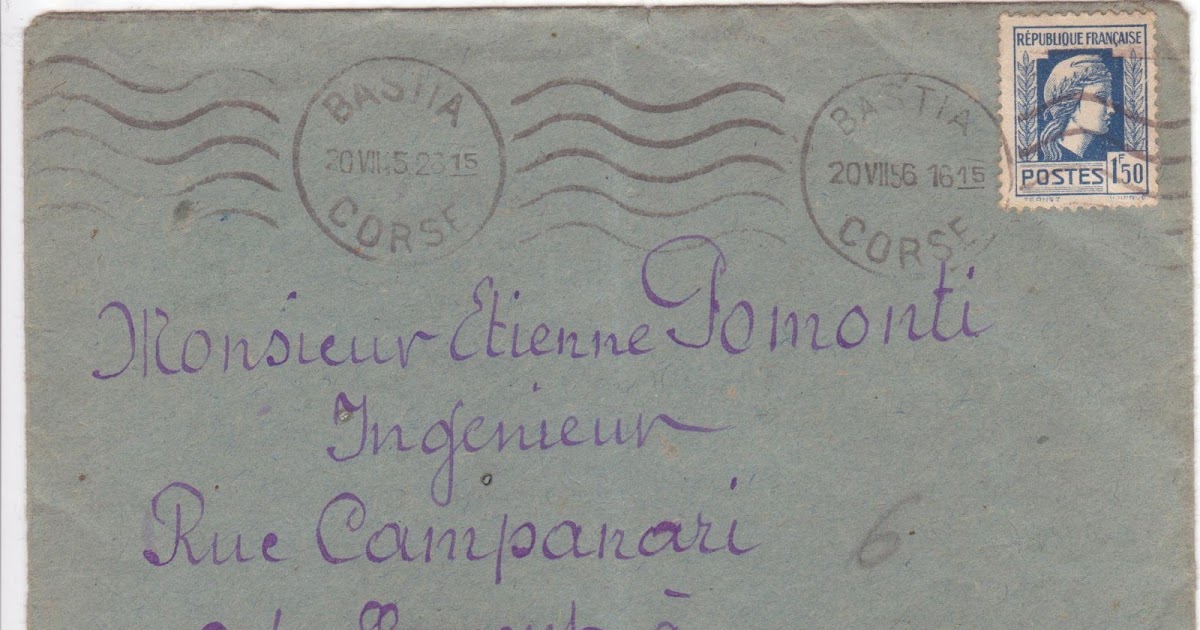 BASTIA
20 VII 45 23 15
CORSE
BASTIA
20 VII 56 16 15
CORSE
RÉPUBLIQUE FRANÇAISE
POSTES 1F50
Monsieur Etienne Pomonti
Ingenieur
Rue Campanari
6